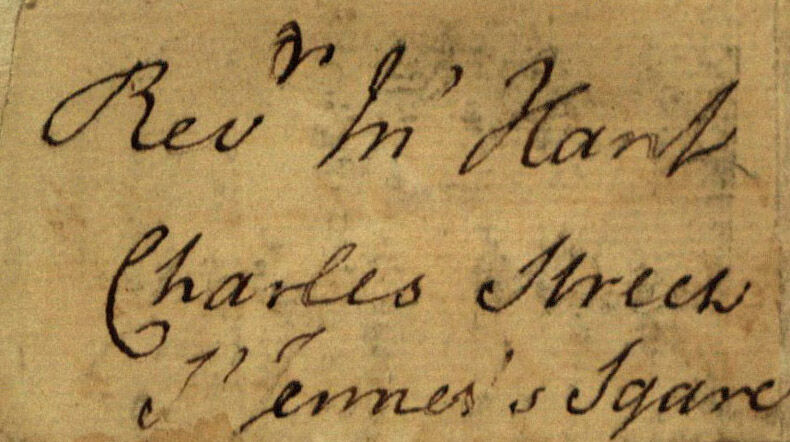 Revʳ Mʳ Hant
Charles Streek
Sᵗ Jemmes's Sqare